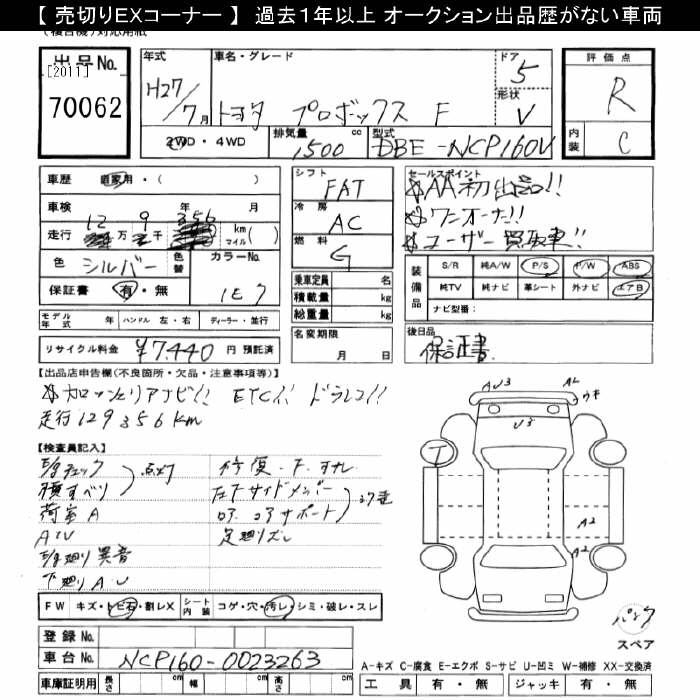 【 売切りEXコーナー 】 過去1年以上 オークション出品歴がない車両
出品No. [2011] 70062
年式 H27/7月
車名・グレード トヨタ プロボックス F
ドア 5
形状 V
評価点 R
内装 C
2WD・4WD
排気量 1500 cc
型式 DBE-NCP160V
車歴 自家用・( )
車検 年 月
走行 12 万 9 千 356 km マイル ( )
色 シルバー 色替
カラーNo. 1E7
保証書 有・無
モデル年式 年 ハンドル 左・右 ディーラー・並行
リサイクル料金 ¥7,440 円 預託済
シフト FAT
冷房 AC
燃料 G
乗車定員 名
積載量 kg
総重量 kg
名変期限 月 日
セールスポイント
AA初出品!!
ワンオーナー!!
ユーザー買取車!!
装備品
S/R 純A/W P/S P/W ABS
純TV 純ナビ 革シート 外ナビ エアB
ナビ型番:
後日品
保証書
【出品店申告欄(不良箇所・欠品・注意事項等)】
ETC!! ドラレコ!!
走行129356Km
【検査員記入】
点灯
横すべり
荷室A
AU
異音
下廻りAU
修復.F.
左Fサイドメンバー
コアサポート
足廻りズレ
FW キズ・トビ石・割レX シート内装 コゲ・穴・汚レ・シミ・破レ・スレ
登録No.
車台No. NCP160-0023263
車庫証明用 長さ cm 幅 cm 高さ cm
AU3
A2
ウキ
U3
T
A2
A2
パンク
スペア
A-キズ C-腐食 E-エクボ S-サビ U-凹ミ W-補修 XX-交換済
工具 有・無 ジャッキ 有・無